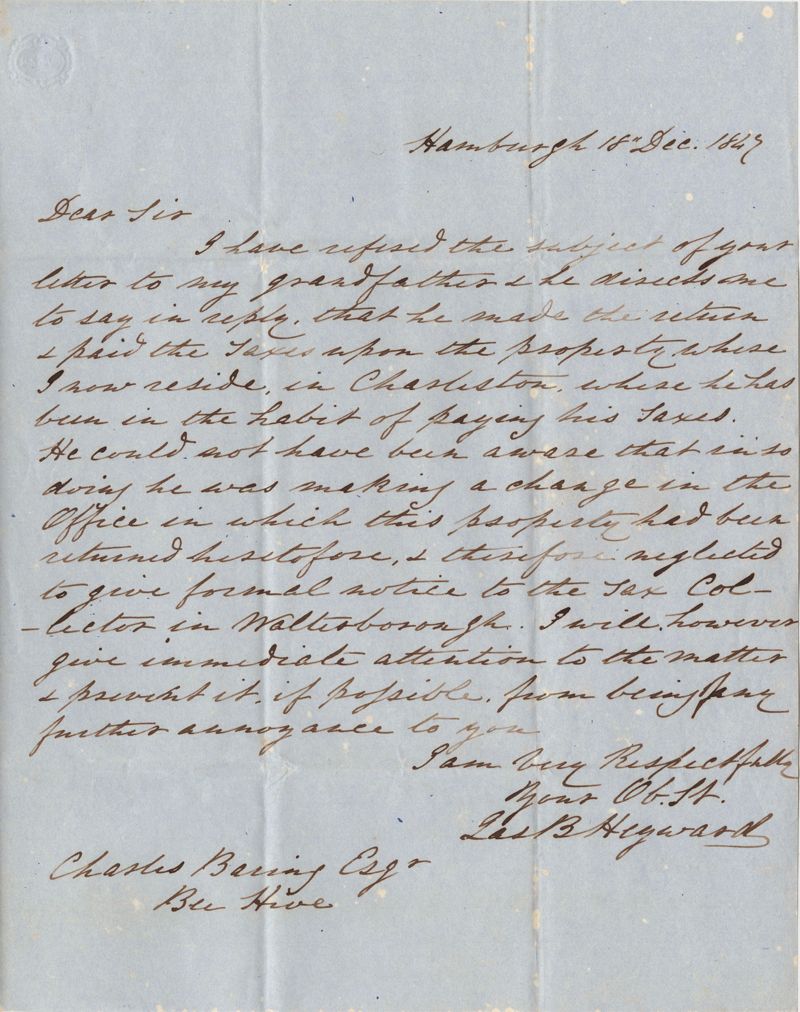 Hamburgh 18" Dec. 1847
Dear Sir
I have refered the subject of your
letter to my grandfather & he directs me
to say in reply, that he made the return
& paid the Taxes upon the property where
I now reside, in Charleston, where he has
been in the habit of paying his Taxes.
He could not have been aware that in so
doing he was making a change in the
Office in which this property had been
returned heretofore, & therefore neglected
to give formal notice to the Tax Col-
-lector in Walterborough. I will, however
give immediate attention to the matter
& prevent it, if possible, from being any
further annoyance to you
I am Very Respectfully
Your Ob. St.
Jas B Heyward
Charles Baring Esqr
Bee Hive